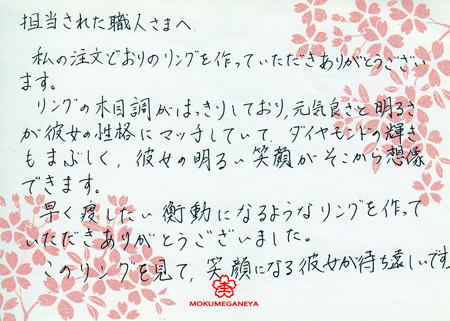 担当された職人さまへ
私の注文どおりのリングを作っていただきありがとうござい
ます。
リングの木目調がはっきりしており、元気良さと明るさ
が彼女の性格にマッチしていて、ダイヤモンドの輝き
もまぶしく、彼女の明るい笑顔がそこから想像
できます。
早く渡したい衝動になるようなリングを作って
いただきありがとうございました。
このリングを見て、笑顔になる彼女が待ち遠しいです
MOKUMEGANEYA